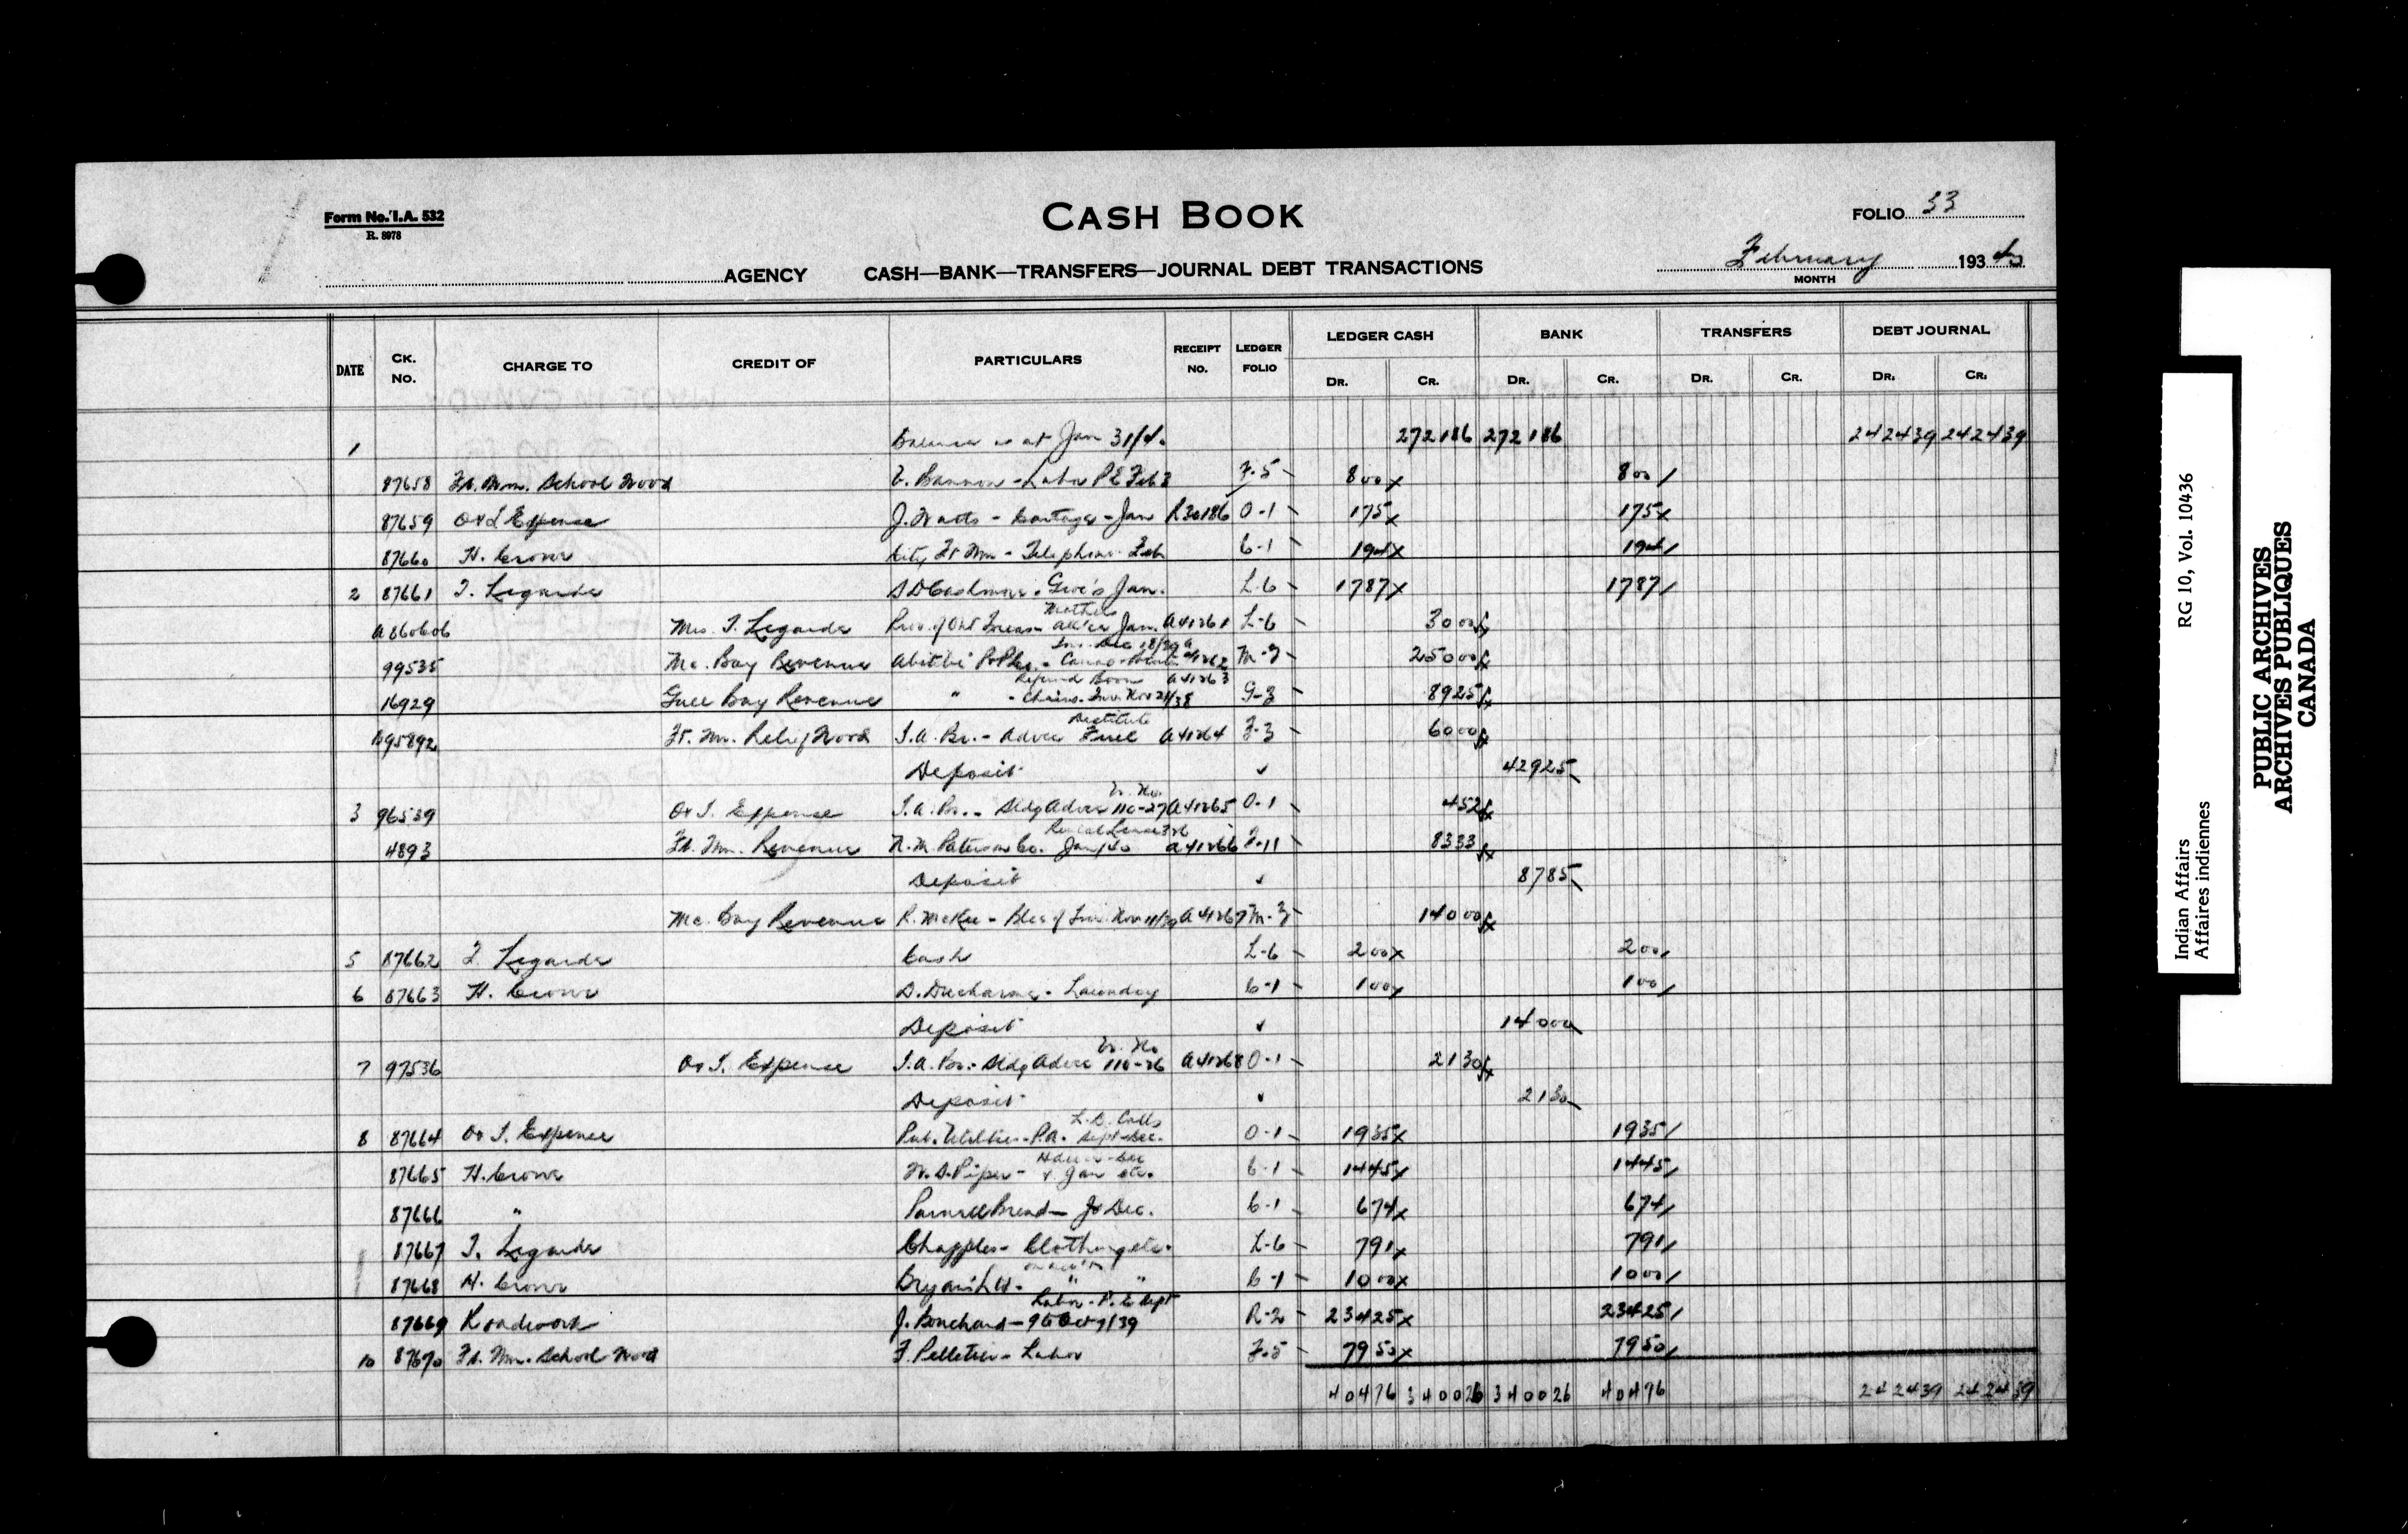 Form No. I.A. 532
R. 8978
CASH BOOK
FOLIO 53
AGENCY CASH—BANK—TRANSFERS—JOURNAL DEBT TRANSACTIONS
February 1934
MONTH
DATE CK. No. CHARGE TO CREDIT OF PARTICULARS RECEIPT No. LEDGER FOLIO LEDGER CASH BANK TRANSFERS DEBT JOURNAL
DR. CR. DR. CR. DR. CR. DR. CR.
1 Balance as at Jan 31/4. 2721 86 2721 86 2424 39 2424 39
87658 Ft. Wm. School Wood Bannon - Labor P E Feb 3 F.5 8 00 8 00
87659 O & I Expense J. Watts - Cartage - Jan R30186 O-1 1 75 1 75
87660 H. Crowe City Ft Wm - Telephone Feb C-1 1 94 1 94
2 87661 T. Legarde Jan. L-6 17 87 17 87
A860606 Mrs. T. Legarde Prov. of Ont Mothers Jan. A41261 L-6 30 00
99535 Mc. Bay Revenue Abitibi P&P Co. A41262 M-3 250 00
16929 Gull Bay Revenue " - Refund Boom Chains. Inv. Nov 21/38 A41263 G-3 89 25
B95892 Ft. Wm. Relief Wood I.A. Br. - Advce Destitute Fuel A41264 F-3 60 00
Deposit 429 25
3 96539 O & I. Expense I.A. Br. - Advce 110-27 A41265 O-1 4 52
4893 Ft. Wm. Revenue N.M. Paterson Co. Jan/40 A41266 F-11 83 33
Deposit 87 85
Mc. Bay Revenue R. McKee - A41267 M-3 140 00
5 87662 T. Legarde Cash L-6 2 00 2 00
6 87663 H. Crowe D. Ducharme - Laundry C-1 1 00 1 00
Deposit 140 00
7 97536 O & I. Expense I.A. Br. - Advce 110-26 A41268 O-1 21 30
Deposit 21 30
8 87664 O & I. Expense Pub. Utilities - P.A. L.D. Calls Sept-Dec. O-1 19 35 19 35
87665 H. Crowe W.S. Piper - & Jan etc. C-1 14 45 14 45
87666 " Parnell Bread - Dec. C-1 6 74 6 74
87667 T. Legarde Chapples - Clothing etc. L-6 7 91 7 91
87668 H. Crowe Bryan's Ltd. - " " C-1 10 00 10 00
87669 Roadwork J. Bouchard - Labor - P.E Sept 9 to Oct 7/39 R-2 234 25 234 25
10 87670 Ft. Wm. School Wood F. Pelletier - Labor F.5 79 50 79 50
404 76 3400 26 3400 26 404 76 2424 39 2424 39
Indian Affairs RG 10, Vol. 10436
Affaires indiennes
PUBLIC ARCHIVES
ARCHIVES PUBLIQUES
CANADA